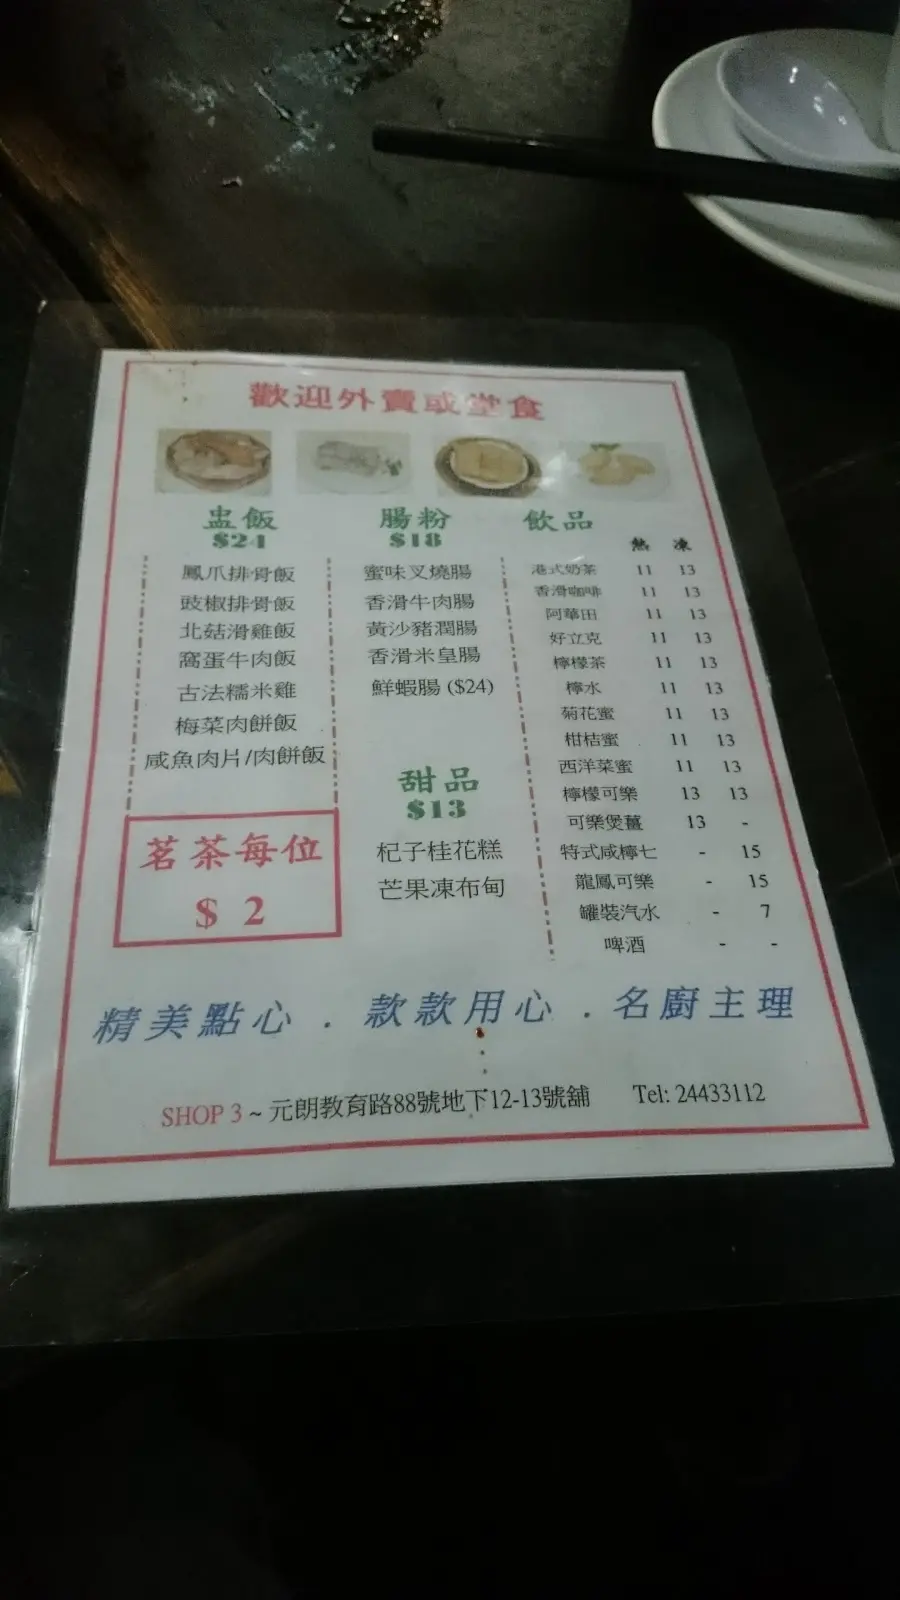 歡迎外賣或堂食
盅飯
$24
鳳爪排骨飯
豉椒排骨飯
北菇滑雞飯
窩蛋牛肉飯
古法糯米雞
梅菜肉餅飯
咸魚肉片/肉餅飯
茗茶每位
$ 2
腸粉
$18
蜜味叉燒腸
香滑牛肉腸
黃沙豬潤腸
香滑米皇腸
鮮蝦腸 ($24)
甜品
$13
杞子桂花糕
芒果凍布甸
飲品
熱 凍
港式奶茶 11 13
香滑咖啡 11 13
阿華田 11 13
好立克 11 13
檸檬茶 11 13
檸水 11 13
菊花蜜 11 13
柑桔蜜 11 13
西洋菜蜜 11 13
檸檬可樂 13 13
可樂煲薑 13 -
特式咸檸七 - 15
龍鳳可樂 - 15
罐裝汽水 - 7
啤酒 - -
精美點心 . 款款用心 . 名廚主理
SHOP 3 ~ 元朗教育路88號地下12-13號舖 Tel: 24433112